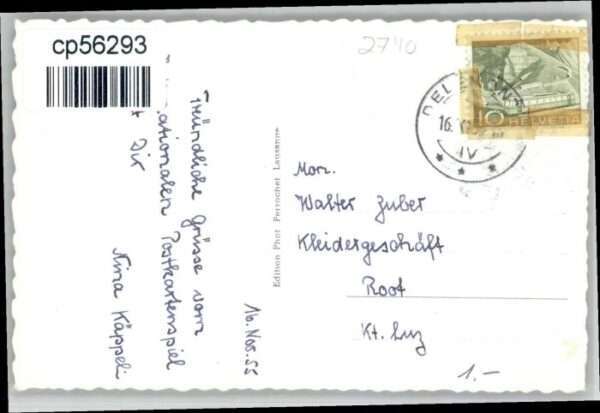 cp56293
2740
10
HELVETIA
16. X
IV
Freundliche Grüsse vom
ationalen Postkartenspiel
Dir
Nina Käppeli
16. Nov. 55
Edition Phot Perrochet Lausanne
Mon.
Walter Zuber
Kleidergeschäft
Root
Kt. Luz
1.-